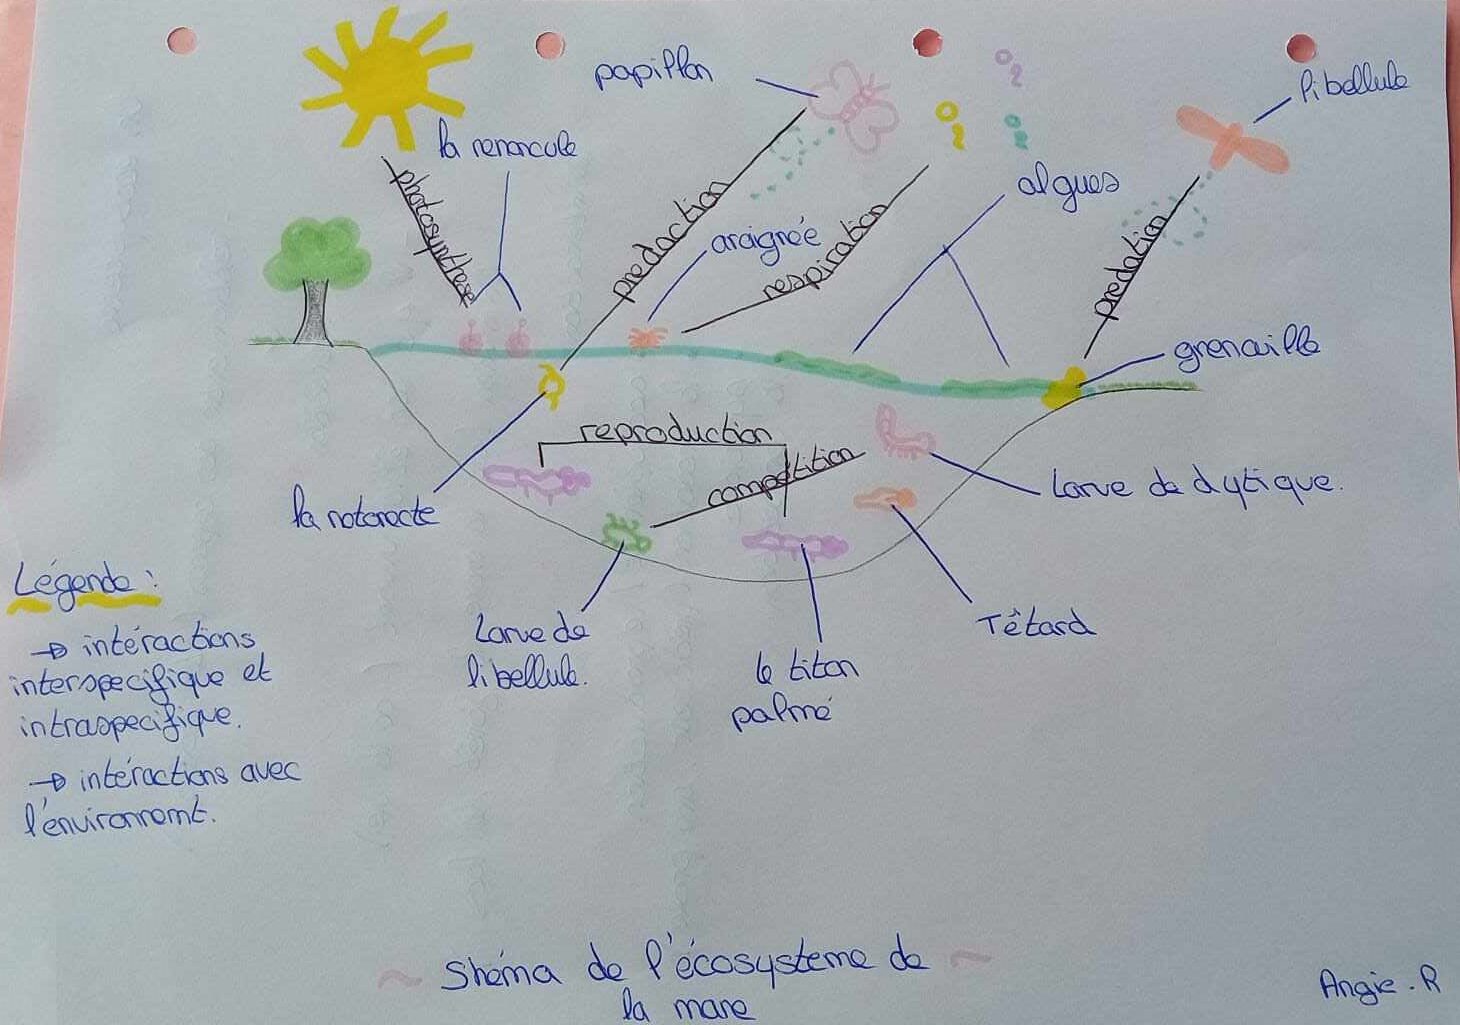 papillon
O2
libellule
la renoncule
O2
O2
algues
photosynthese
predaction
araignée
respiration
predation
grenouille
reproduction
compétition
Larve de dytique.
la notonecte
Légende :
→ intéractions
interspecifique et
intraspecifique.
→ intéractions avec
l'environnomt.
Larve de
libellule.
le titon
palmé
Têtard
~ Shéma de l'écosysteme de ~
la mare
Angie. R